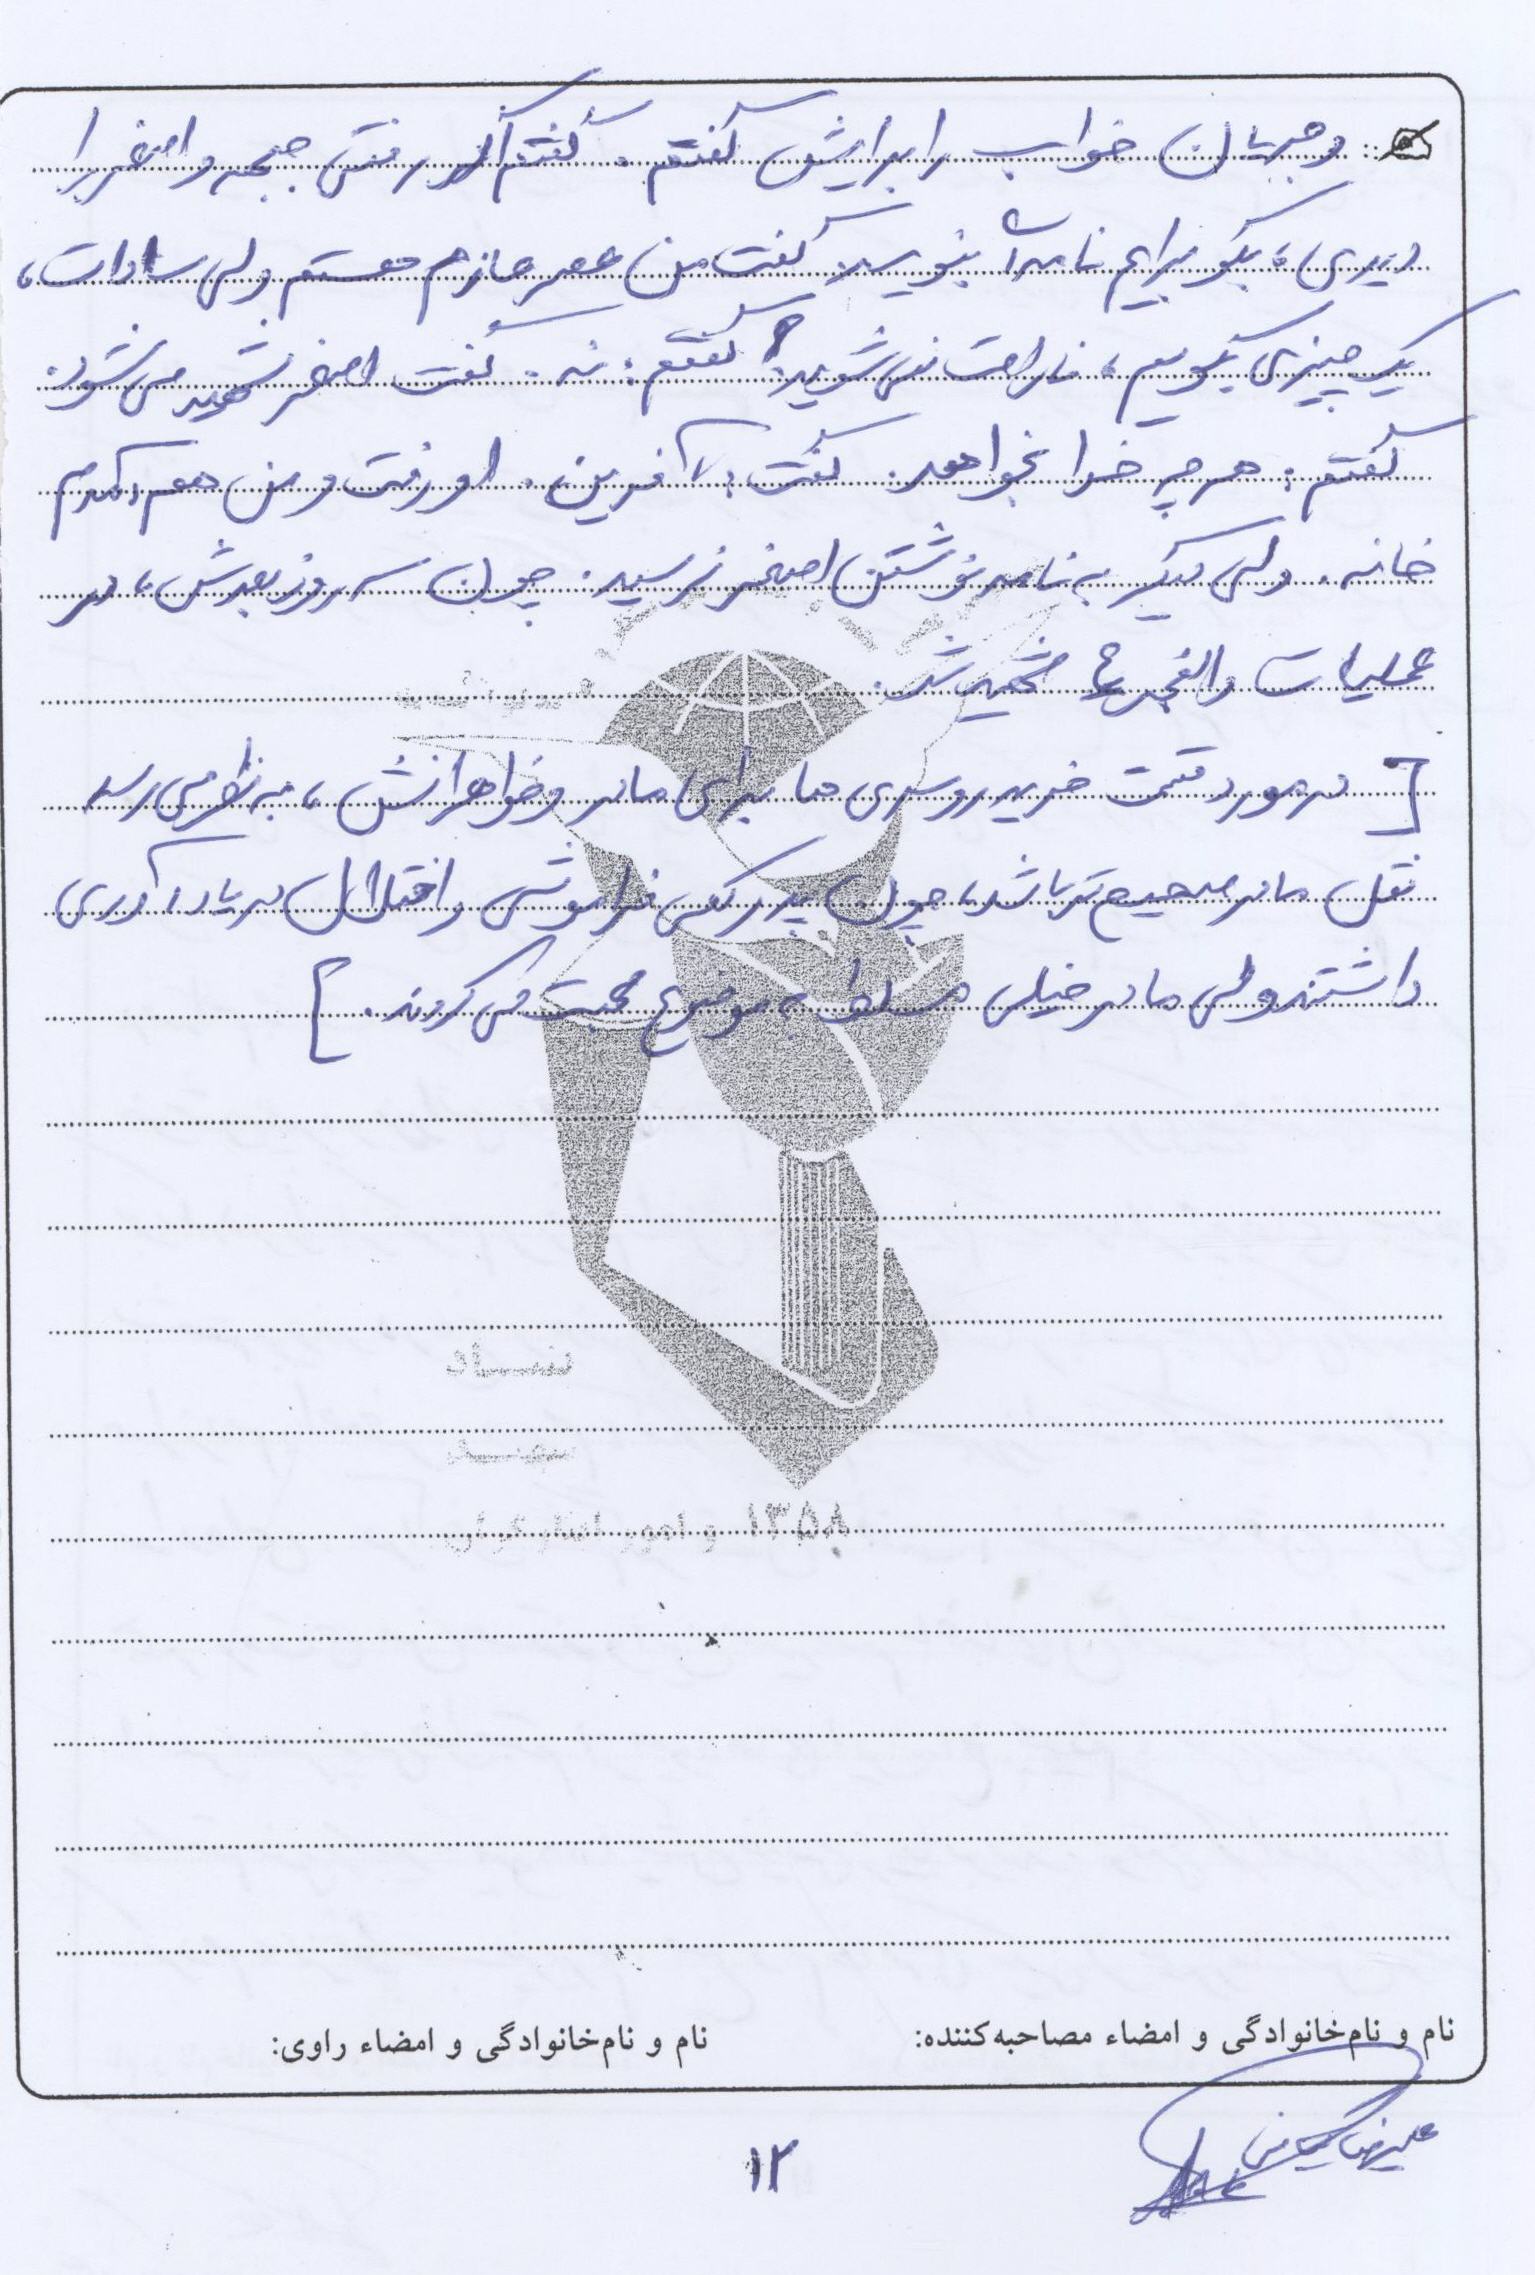 و جریان خواب را برایش گفتم. گفتم اگر رفتی جبهه و اصغر را
دیدی، بگو برایم نامه بنویسد. گفت من عصر عازم هستم ولی سادات،
یک چیزی بگویم، ناراحت نمی شوید؟ گفتم: نه. گفت اصغر شهید می شود.
گفتم: هر چه خدا بخواهد. گفت: آفرین. او رفت و من هم آمدم
خانه. ولی دیگر به نامه نوشتن اصغر نرسید. چون سه روز بعدش، در
عملیات والفجر شهید شد.
[ در مورد قیمت خرید روسری ها برای مادر و خواهرانش، به نظر می رسد
نقل مادر صحیح تر باشد، چون پدر کمی فراموشی و اختلال در یادآوری
داشتند ولی مادر خیلی مسلط به موضوع صحبت می کردند. ]
۱۳۵۸
نام و نام‌خانوادگی و امضاء مصاحبه‌کننده:
نام و نام‌خانوادگی و امضاء راوی:
علیرضا
۱۲